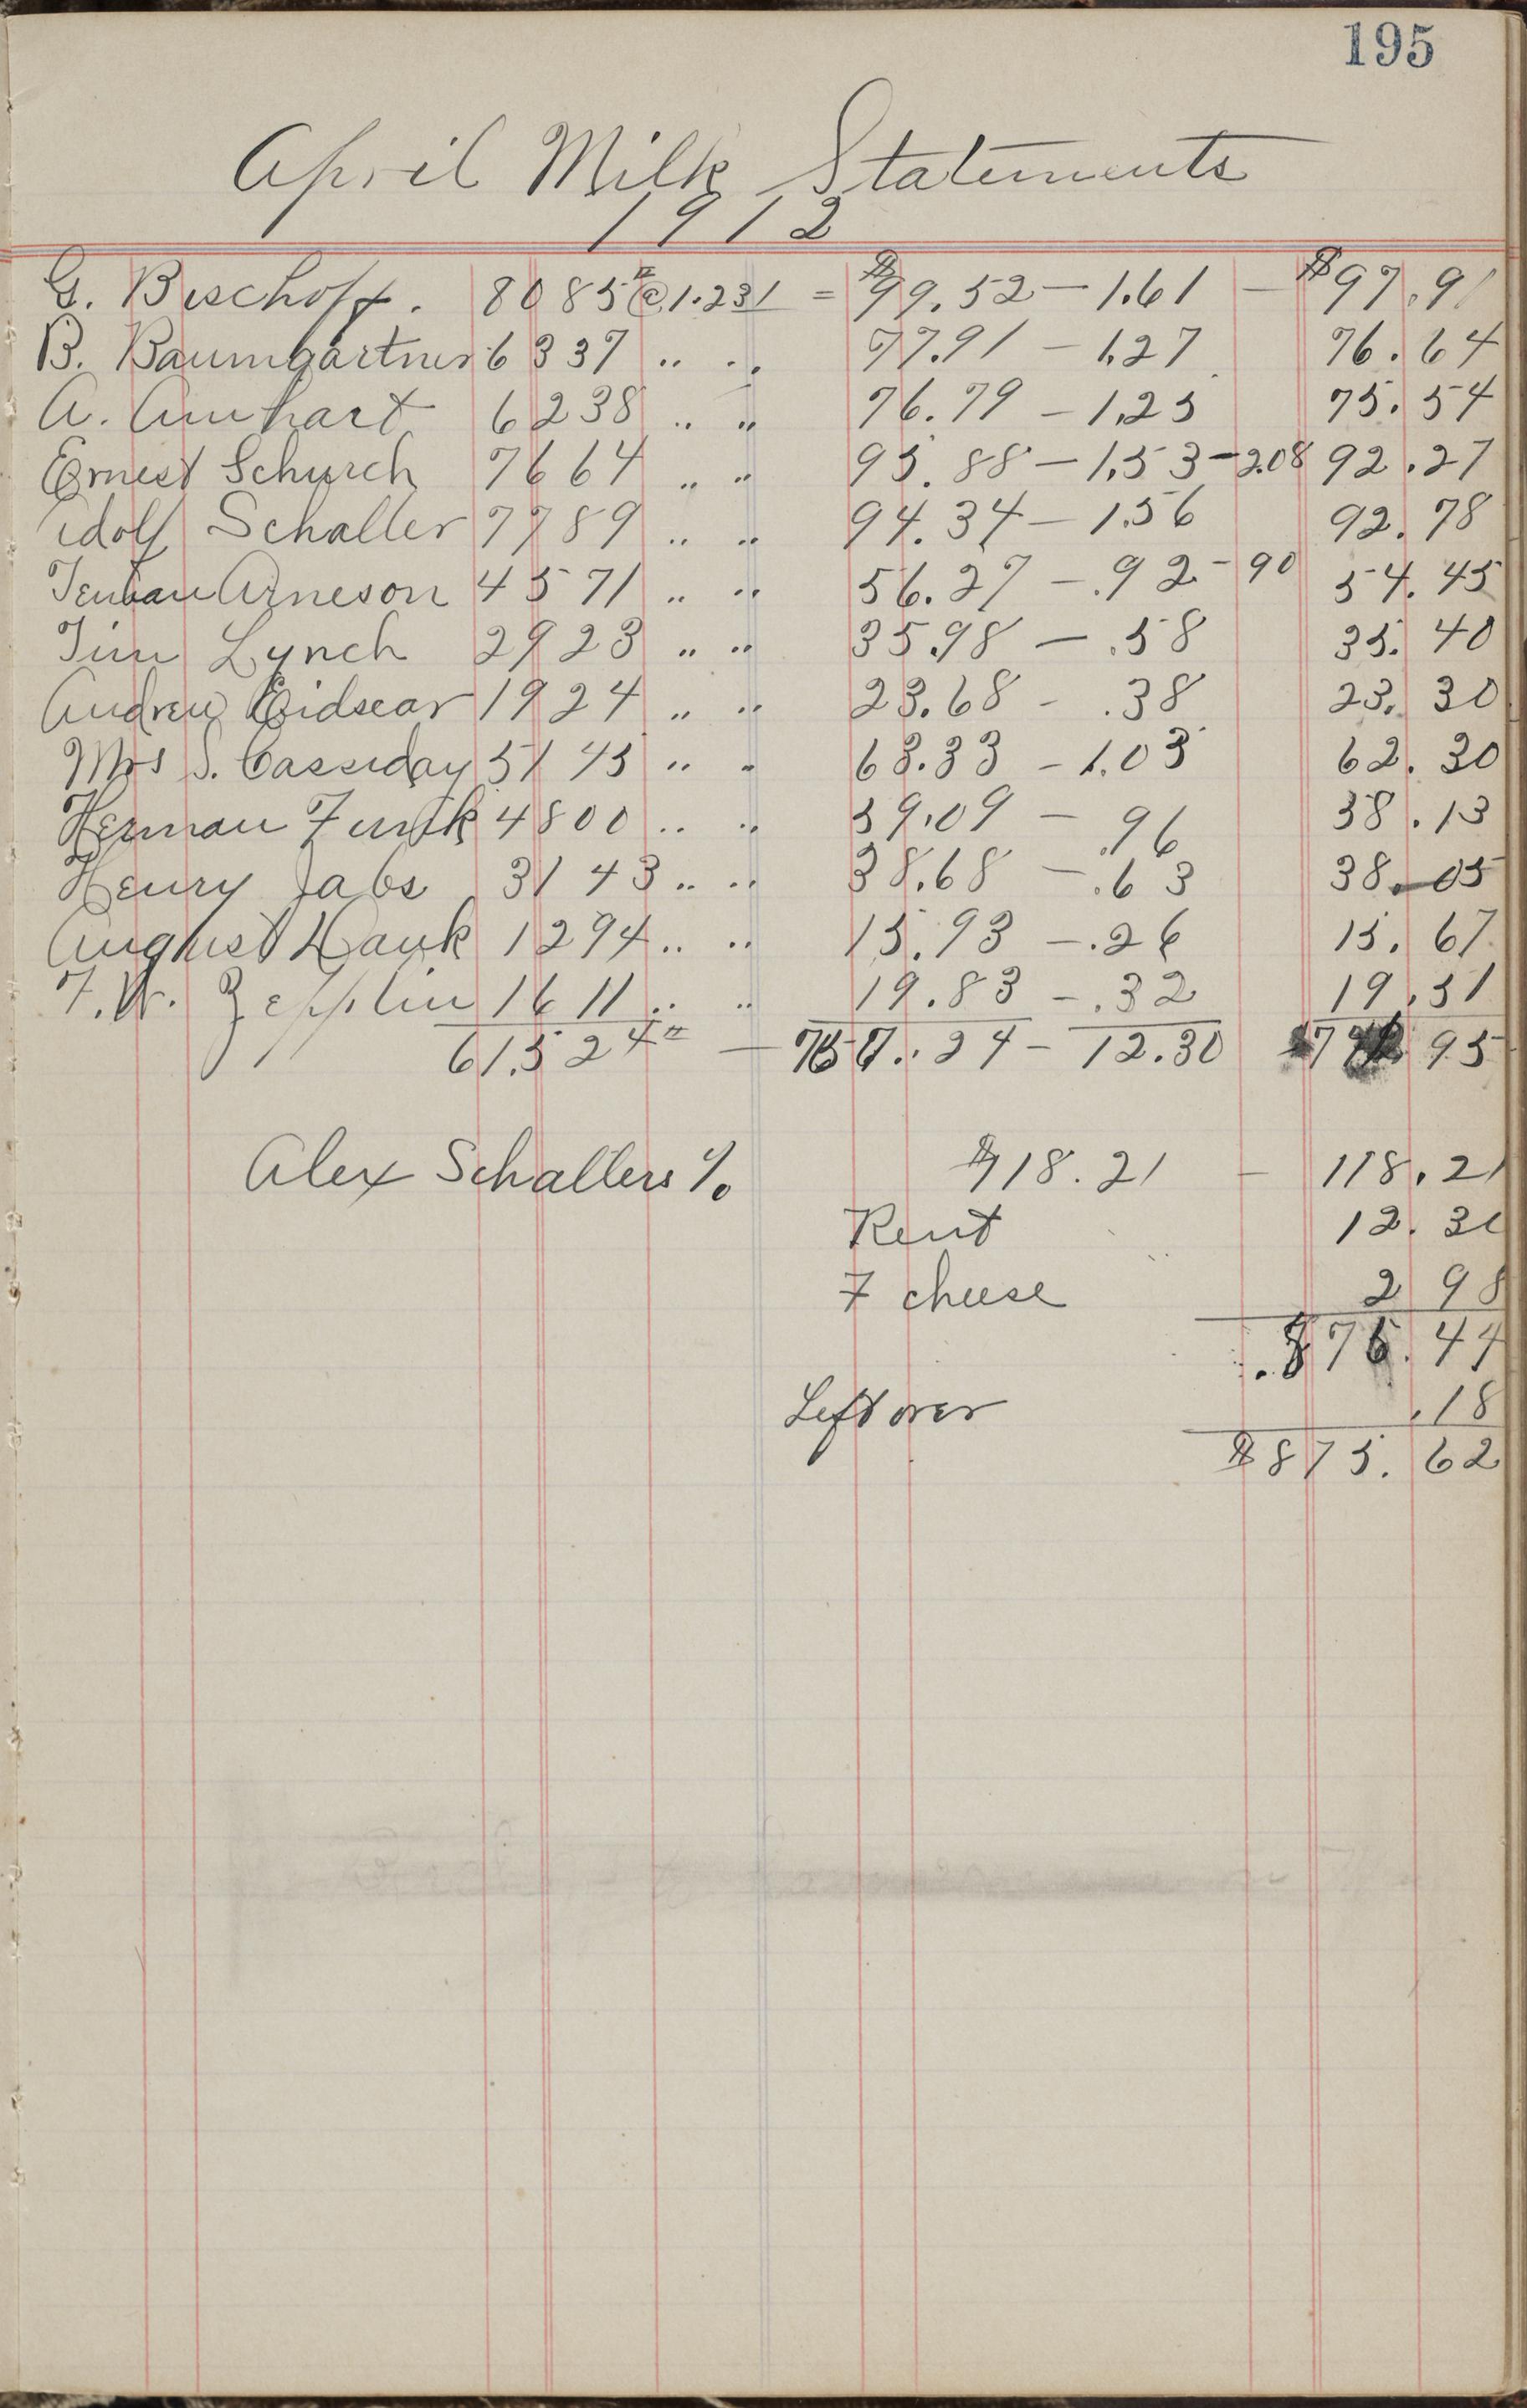 195
April Milk Statements
1912
G. Bischoff. 8085# @ 1.231 = $99.52 - 1.61 - $97.91
B. Baumgartner 6337 " " 77.91 - 1.27 76.64
A. Amhart 6238 " " 76.79 - 1.25 75.54
Ernest Schurch 7664 " " 95.88 - 1.53 - 2.08 92.27
Adolf Schaller 7789 " " 94.34 - 1.56 92.78
Arneson 4571 " " 56.27 - .92 - 90 54.45
Tim Lynch 2923 " " 35.98 - .58 35.40
Andrew Eidsear 1924 " " 23.68 - .38 23.30
Mrs S. Cassiday 5145 " " 63.33 - 1.03 62.30
Herman Funk 4800 " " 59.09 - .96 58.13
Henry Jabs 3143 " " 38.68 - .63 38.05
August Hauk 1294 " " 15.93 - .26 15.67
F.W. Zepplin 1611 " " 19.83 - .32 19.51
61.524# - 757.24 - 12.30 95
Alex Schallers % $118.21 - 118.21
Rent 12.30
7 cheese 2 98
875.44
Left over .18
$875.62